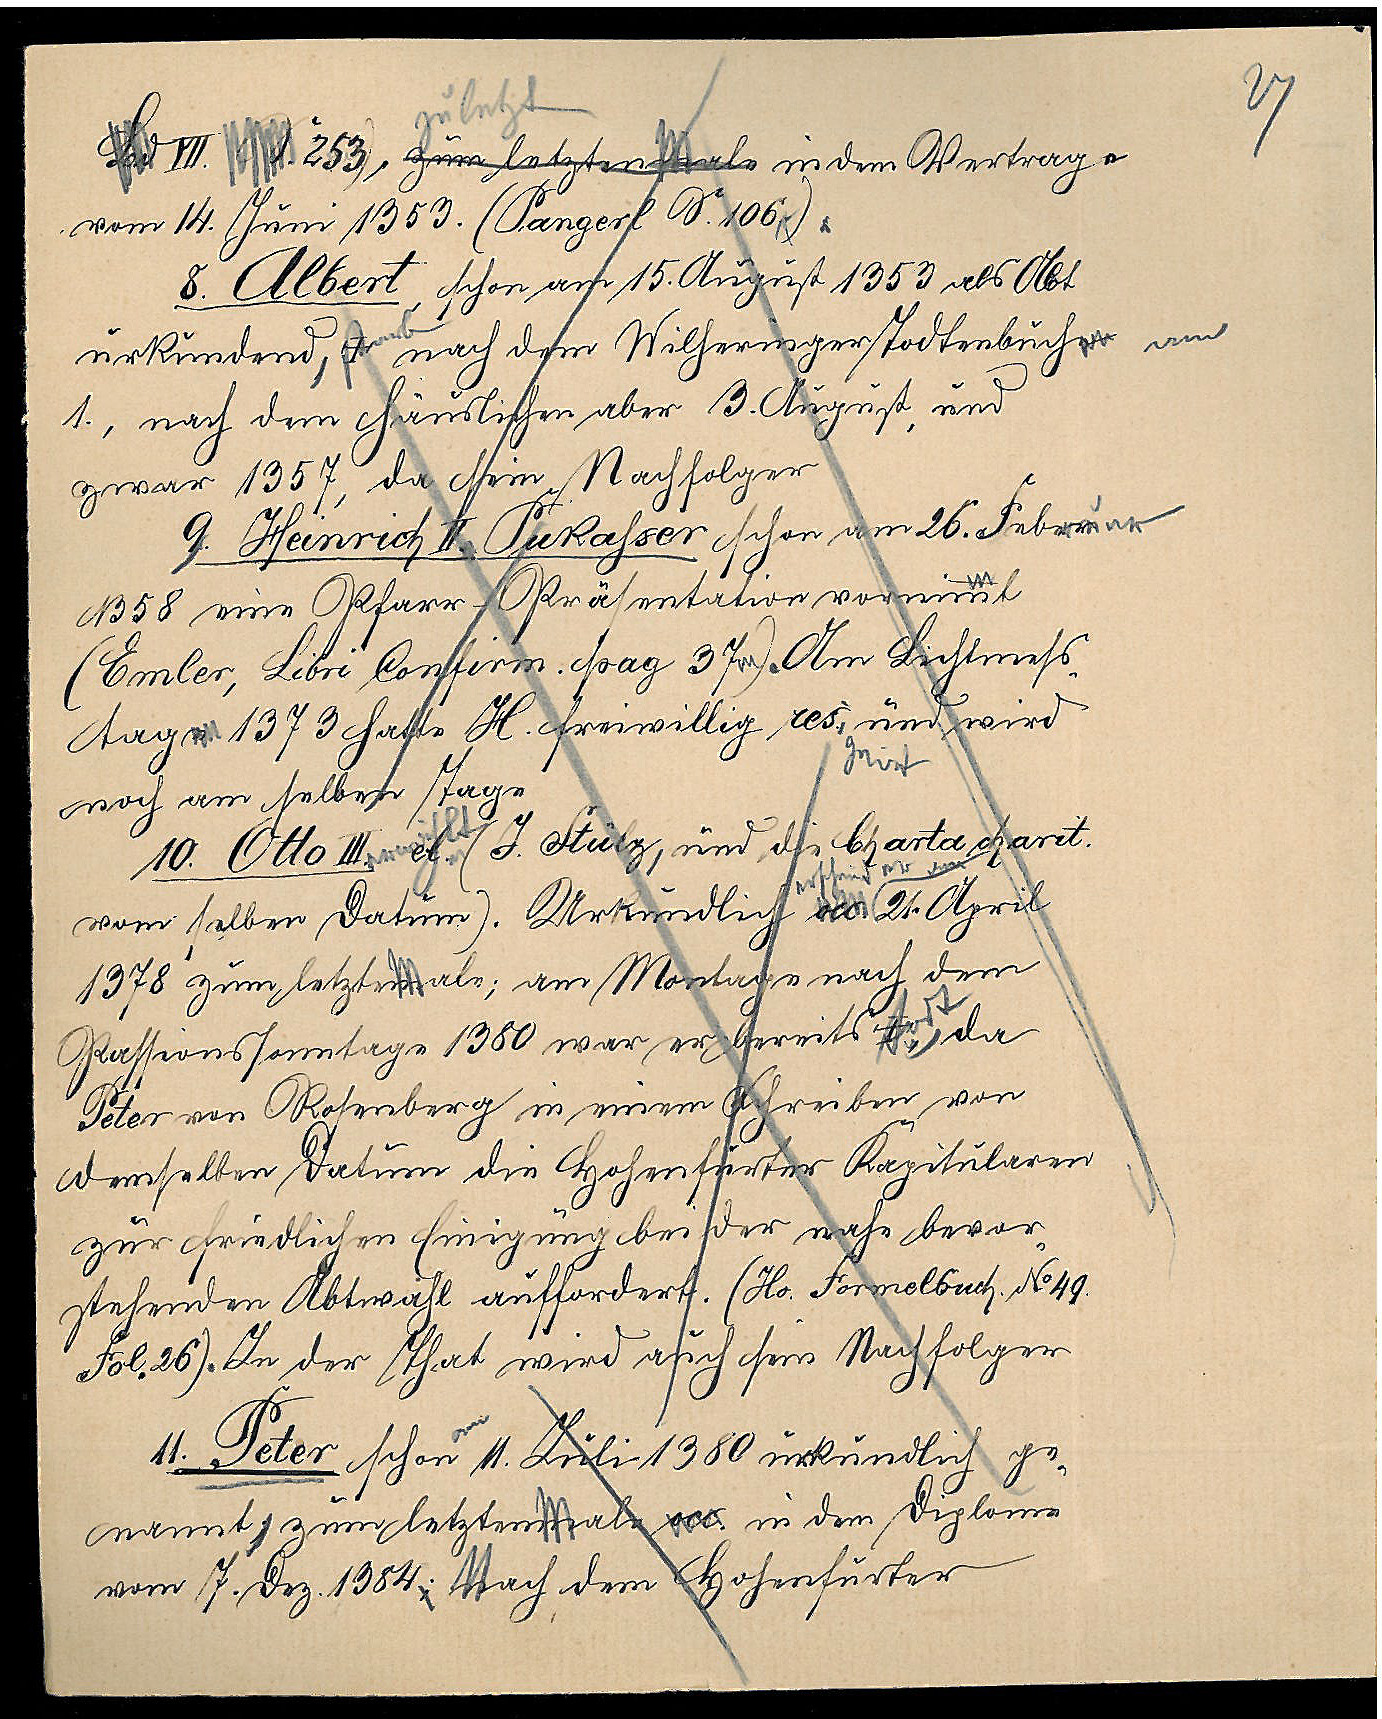 27
zuletzt
Bd VII. S. 253), zum letztenmale in dem Vertrage
vom 14. Juni 1353. (Pangerl S. 106).
8. Albert, schon am 15. August 1353 als Abt
urkundend, starb nach dem Wilheringer Todtenbuche am
1., nach dem häuslichen aber 3. August, und
zwar 1357, da sein Nachfolger
9. Heinrich II. Pukasser schon am 26. Februar
1358 eine Pfarr-Präsentation vornimt
(Emler, Libri Confirm. pag 37). Am Lichtmess-
tage 1373 hatte H. freiwillig res. und wird
noch am selben Tage
10. Otto III. erwählt el. (J. Stülz, und die Charta charit.
erscheint er am
vom selben Datum). Urkundlich occ. 21. April
1378 zum letztenmale; am Montage nach dem
Passionssonntage 1380 war er bereits todt, da
Peter von Rosenberg in einem Schreiben von
demselben Datum die Hohenfurter Kapitularen
zur friedlichen Einigung bei der nahe bevor-
stehenden Abtwahl auffordert. (Ho. Formelbuch. No 49.
Fol. 26). In der That wird auch sein Nachfolger
11. Peter schon am 11. Juli 1380 urkundlich ge-
nannt, zum letztenmale occ. in dem Diplome
vom 7. Dez. 1384; Nach dem Hohenfurter